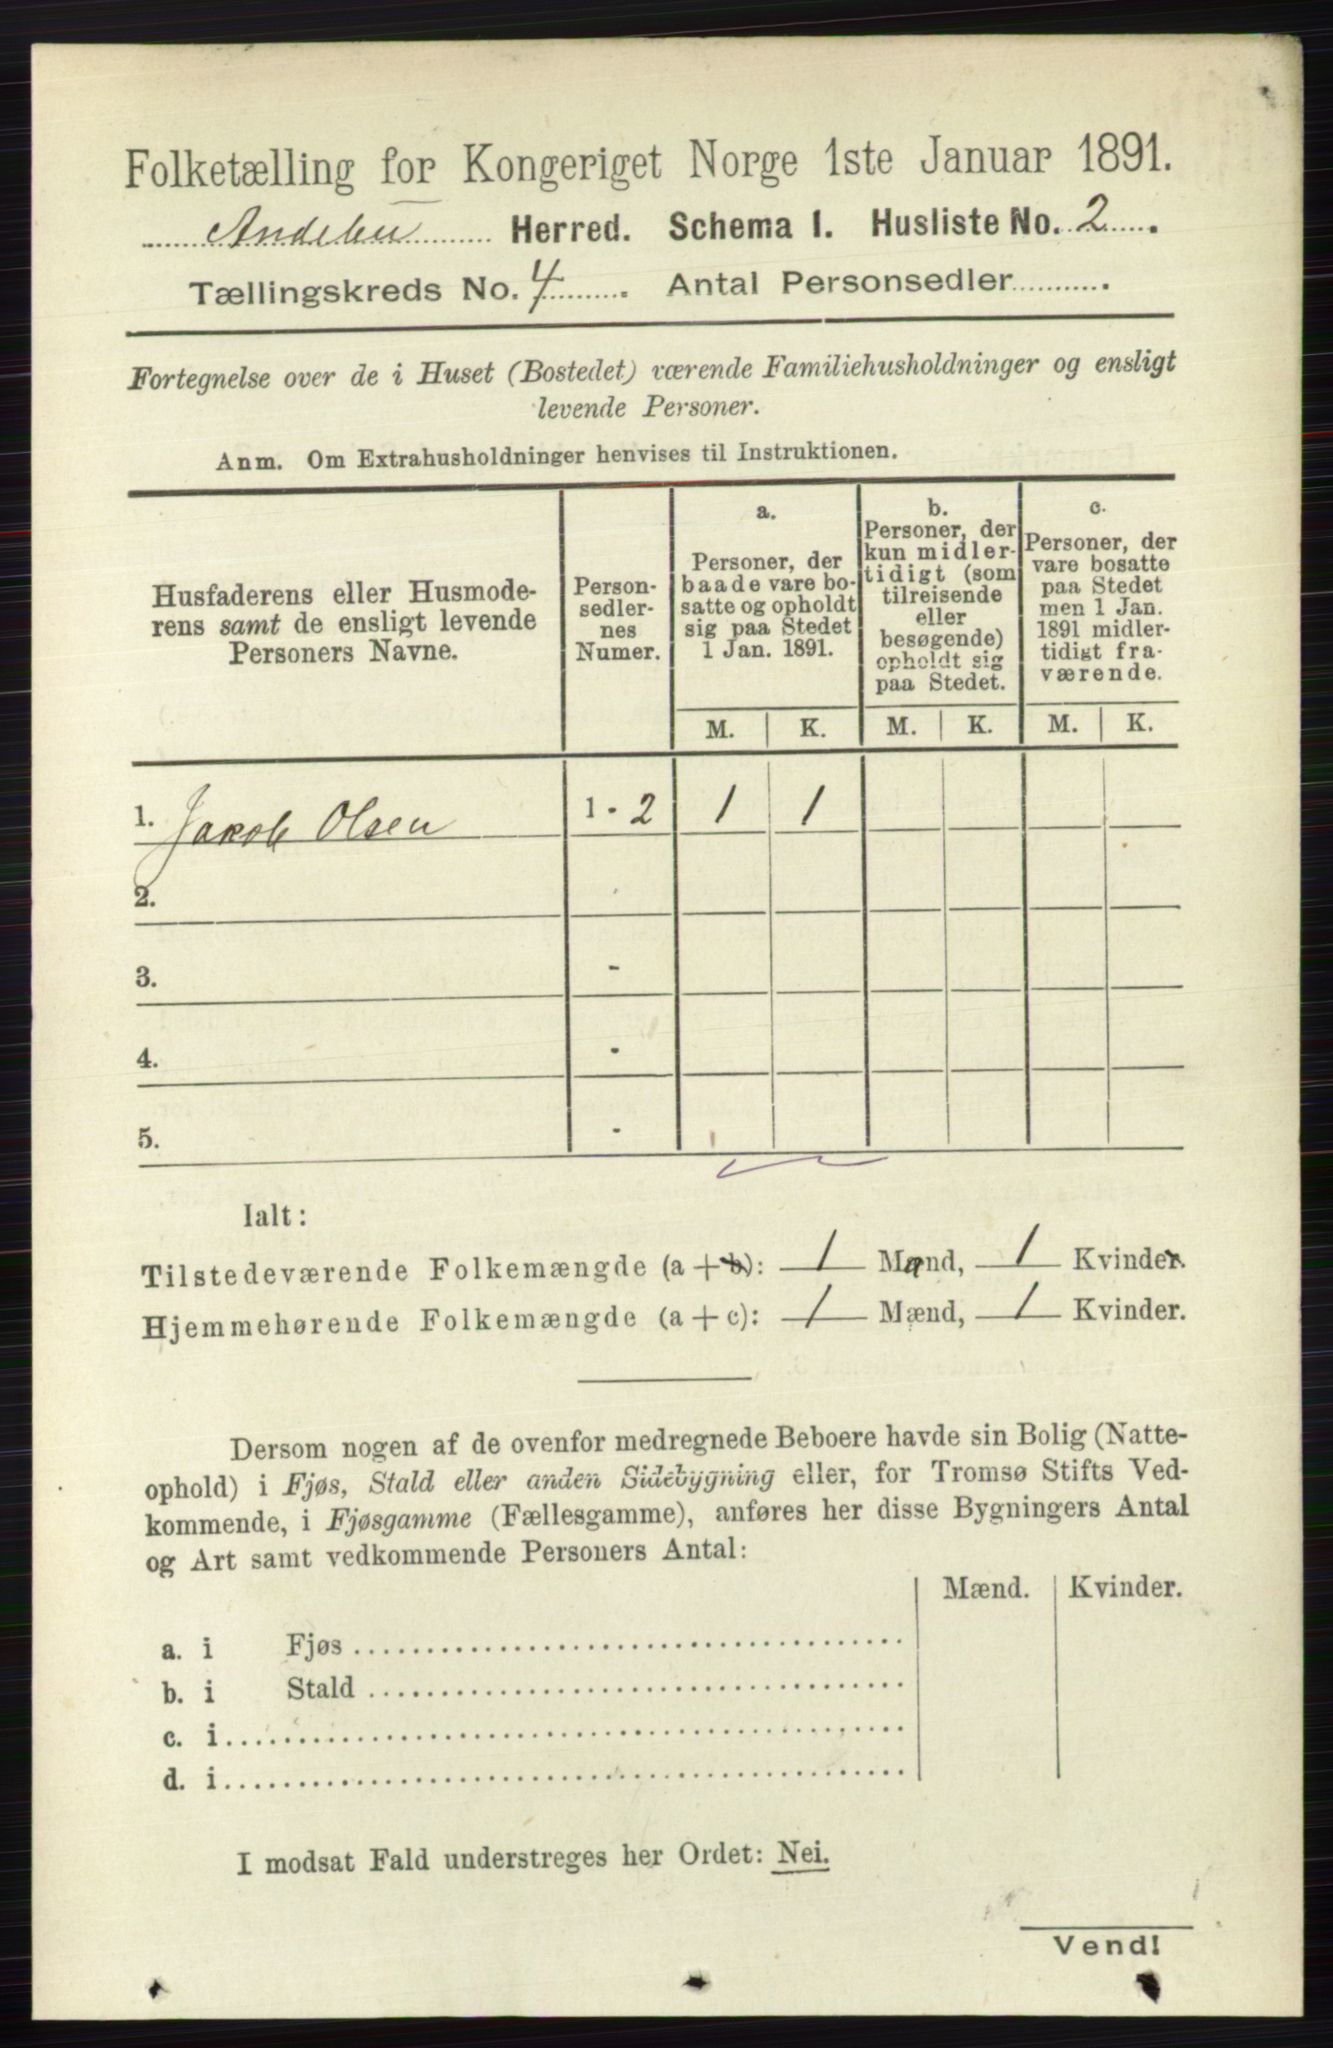 Folketælling for Kongeriget Norge 1ste Januar 1891.
Andebu Herred. Schema 1. Husliste No. 2
Tællingskreds No. 4. Antal Personsedler
Fortegnelse over de i Huset (Bostedet) værende Familiehusholdninger og ensligt
levende Personer.
Anm. Om Extrahusholdninger henvises til Instruktionen.
Husfaderens eller Husmode-
rens samt de ensligt levende
Personers Navne.
Person-
sedler-
nes
Numer.
a.
Personer, der
baade vare bo-
satte og opholdt
sig paa Stedet
1 Jan. 1891.
b.
Personer, der
kun midler-
tidigt (som
tilreisende
eller
besøgende)
opholdt sig
paa Stedet.
c.
Personer, der
vare bosatte
paa Stedet
men 1 Jan.
1891 midler-
tidigt fra-
værende.
M. K. M. K. M. K.
1. Jakob Olsen 1 - 2 1 1
2.
3. -
4. -
5. -
Ialt:
Tilstedeværende Folkemængde (a + b): 1 Mand, 1 Kvinder.
Hjemmehørende Folkemængde (a + c): 1 Mænd, 1 Kvinder.
Dersom nogen af de ovenfor medregnede Beboere havde sin Bolig (Natte-
ophold) i Fjøs, Stald eller anden Sidebygning eller, for Tromsø Stifts Ved-
kommende, i Fjøsgamme (Fællesgamme), anføres her disse Bygningers Antal
og Art samt vedkommende Personers Antal:
Mænd. Kvinder.
a. i Fjøs
b. i Stald
c. i
d. i
I modsat Fald understreges her Ordet: Nei.
Vend!